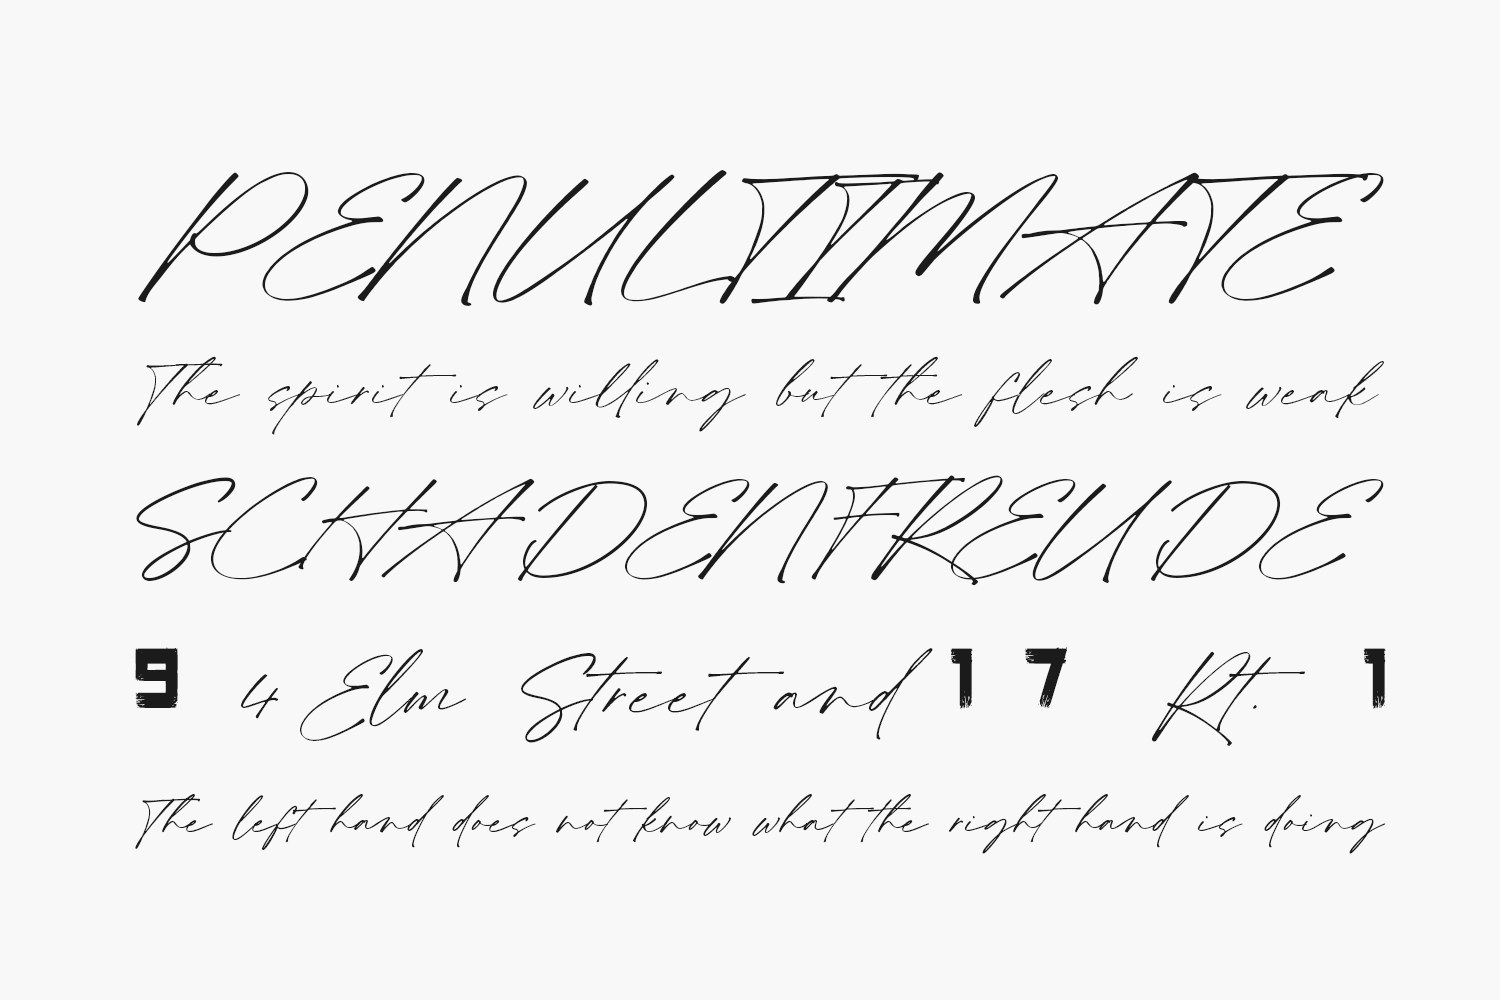 PENULTIMATE
The spirit is willing but the flesh is weak
SCHADENFREUDE
9 4 Elm Street and 17 Rt. 1
The left hand does not know what the right hand is doing